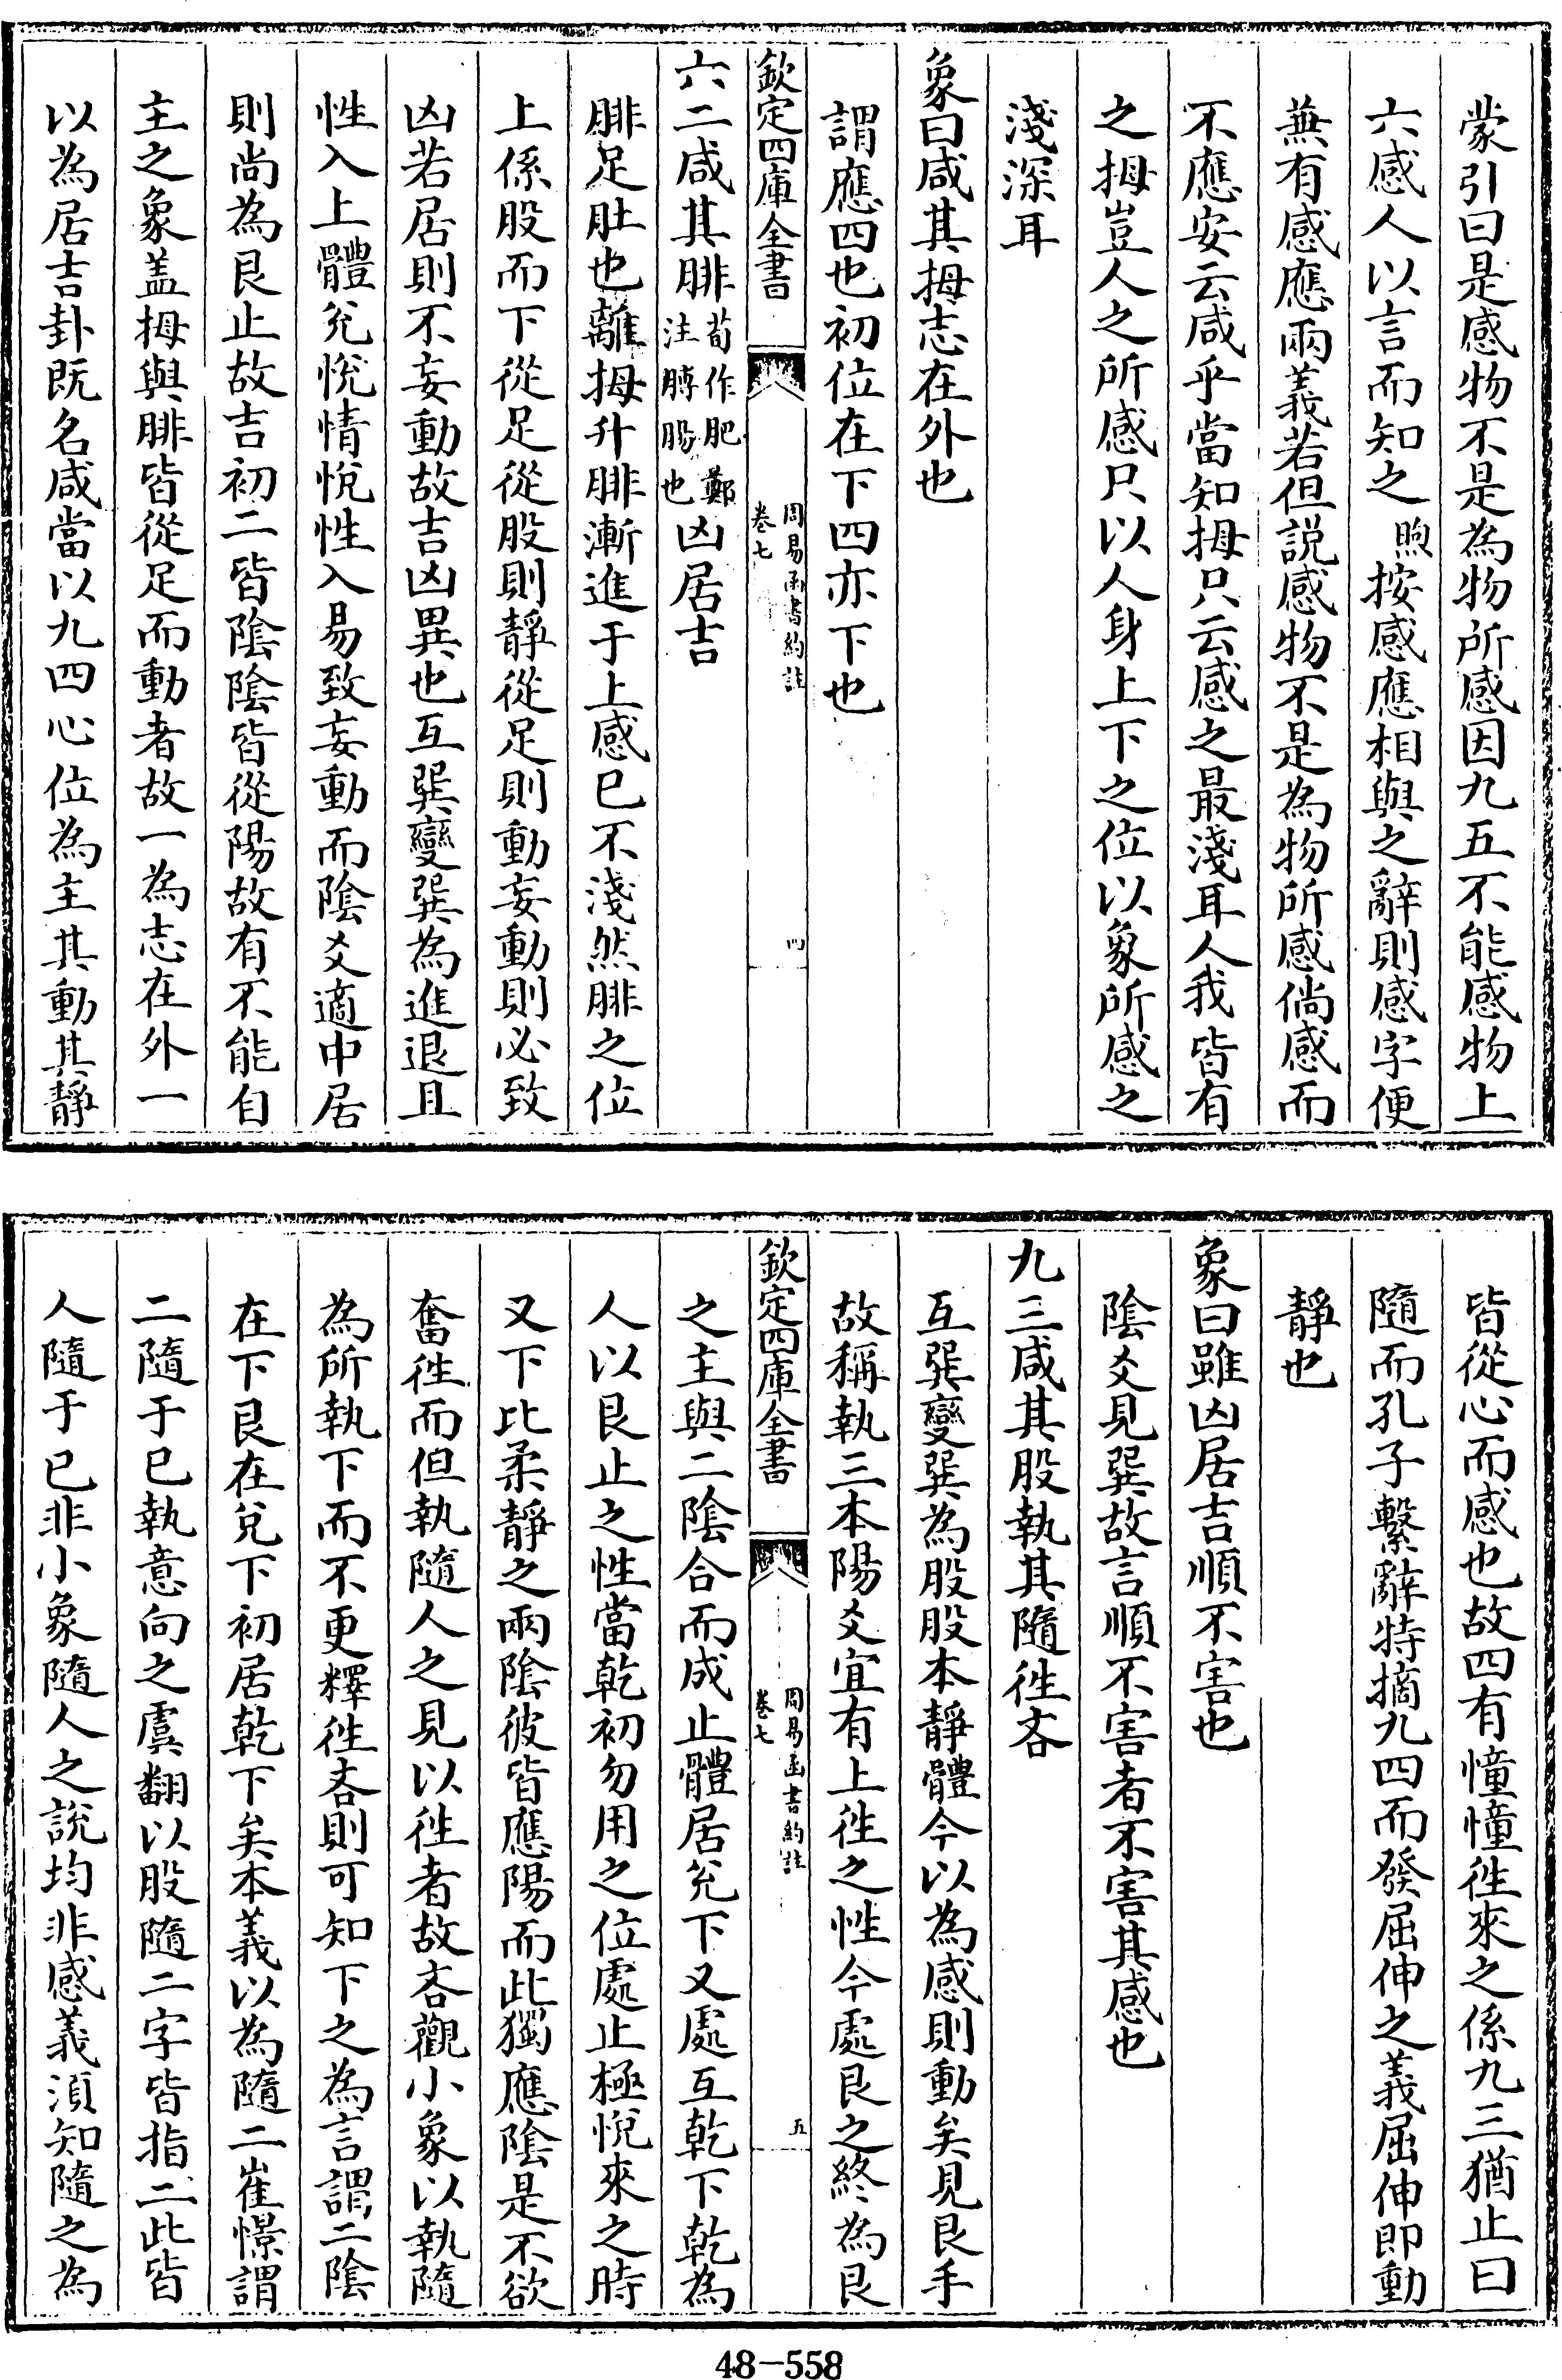 蒙引曰是感物不是為物所感因九五不能感物上
六感人以言而知之煦按感應相與之辭則感字便
無有感應兩義若但説感物不是為物所感倘感而
不應安云咸乎當知拇只云感之最淺耳人我皆有
之拇豈人之所感只以人身上下之位以象所感之
淺深耳
象曰咸其拇志在外也
謂應四也初位在下四亦下也
欽定四庫全書
周易函書約註
卷七
四
六二咸其腓荀作肥鄭注膊腸也凶居吉
腓足肚也離拇升腓漸進于上感已不淺然腓之位
上係股而下從足從股則靜從足則動妄動則必致
凶若居則不妄動故吉凶異也互巽變巽為進退且
性入上體兊悅情悅性入易致妄動而陰爻適中居
則尚為艮止故吉初二皆陰陰皆從陽故有不能自
主之象盖拇與腓皆從足而動者故一為志在外一
以為居吉卦既名咸當以九四心位為主其動其靜
皆從心而感也故四有憧憧徃來之係九三猶止曰
隨而孔子繫辭特摘九四而發屈伸之義屈伸即動
靜也
象曰雖凶居吉順不害也
陰爻見巽故言順不害者不害其感也
九三咸其股執其隨徃吝
互巽變巽為股股本靜體今以為感則動矣見艮手
故稱執三本陽爻宜有上徃之性今處艮之終為艮
欽定四庫全書
周易函書約註
卷七
五
之主與二陰合而成止體居兊下又處互乾下乾為
人以艮止之性當乾初勿用之位處止極悅來之時
又下比柔靜之兩陰彼皆應陽而此獨應陰是不欲
奮徃而但執隨人之見以徃者故吝觀小象以執隨
為所執下而不更釋徃吝則可知下之為言謂二陰
在下艮在兌下初居乾下矣本義以為隨二崔憬謂
二隨于已執意向之虞翻以股隨二字皆指二此皆
人隨于已非小象隨人之說均非感義須知隨之為
48-558